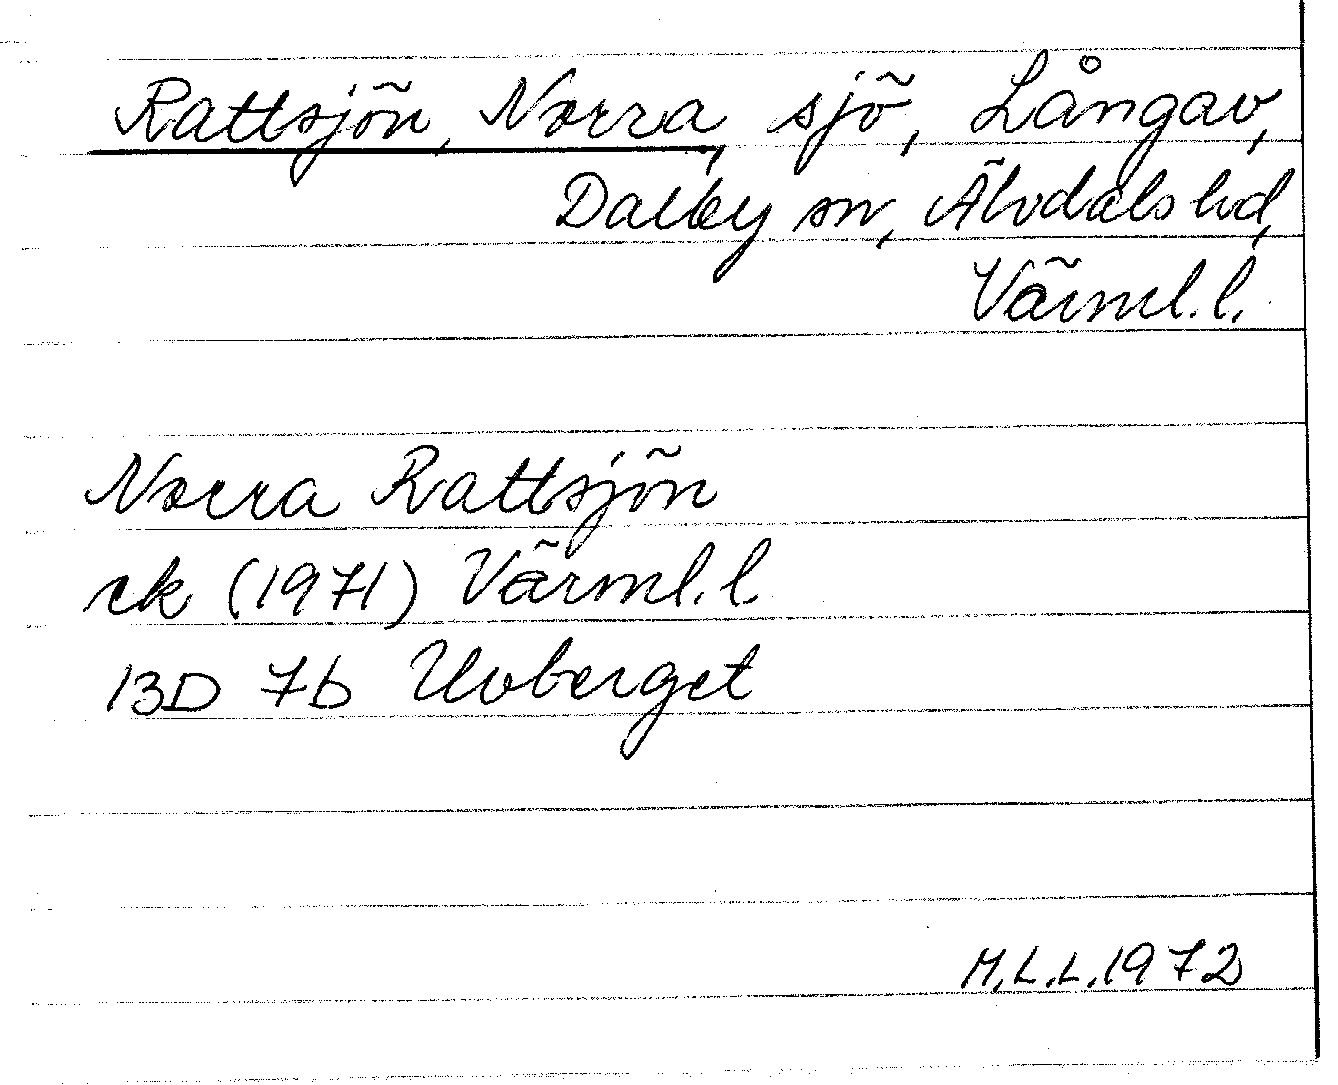 Rattsjön, Norra, sjö, Långav,
Dalby sn, Älvdals hd,
Värml. l.
Norra Rattsjön
rk (1971) Värml. l.
13D 7b Uvberget
M.L.L. 1972